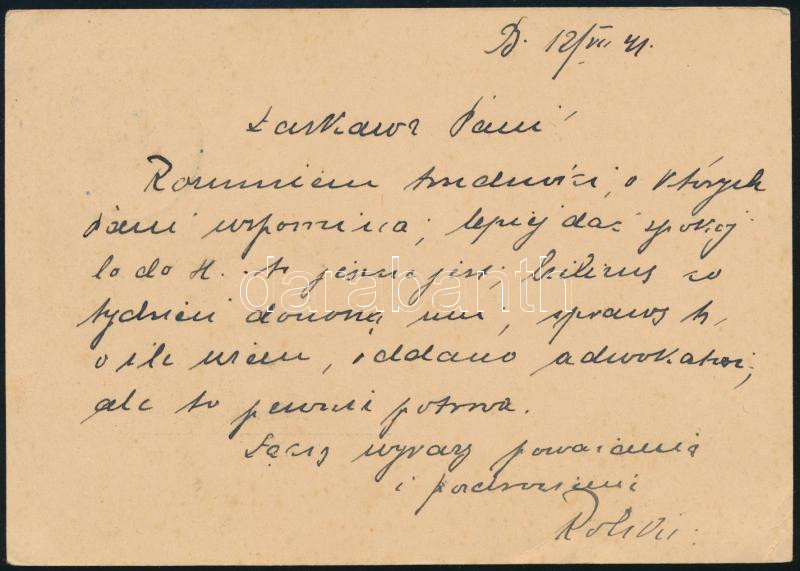 B. 12/VII 41.
Łaskawa Pani!
Rozumiem trudności, o których
Pani wspomina; lepiej dać spokój.
Co do H. to jasne jest, co
tydzień donoszą mi, sprawę tę,
o ile wiem, oddano adwokatowi,
ale to pewnie potrwa.
Łączę wyrazy poważania
i pozdrowienia
darabanth